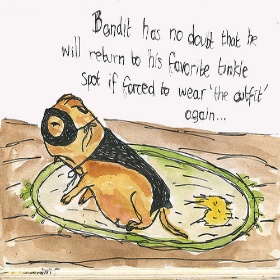 Bandit has no doubt that he
will return to his favorite tinkle
spot if forced to wear 'the outfit'
again...